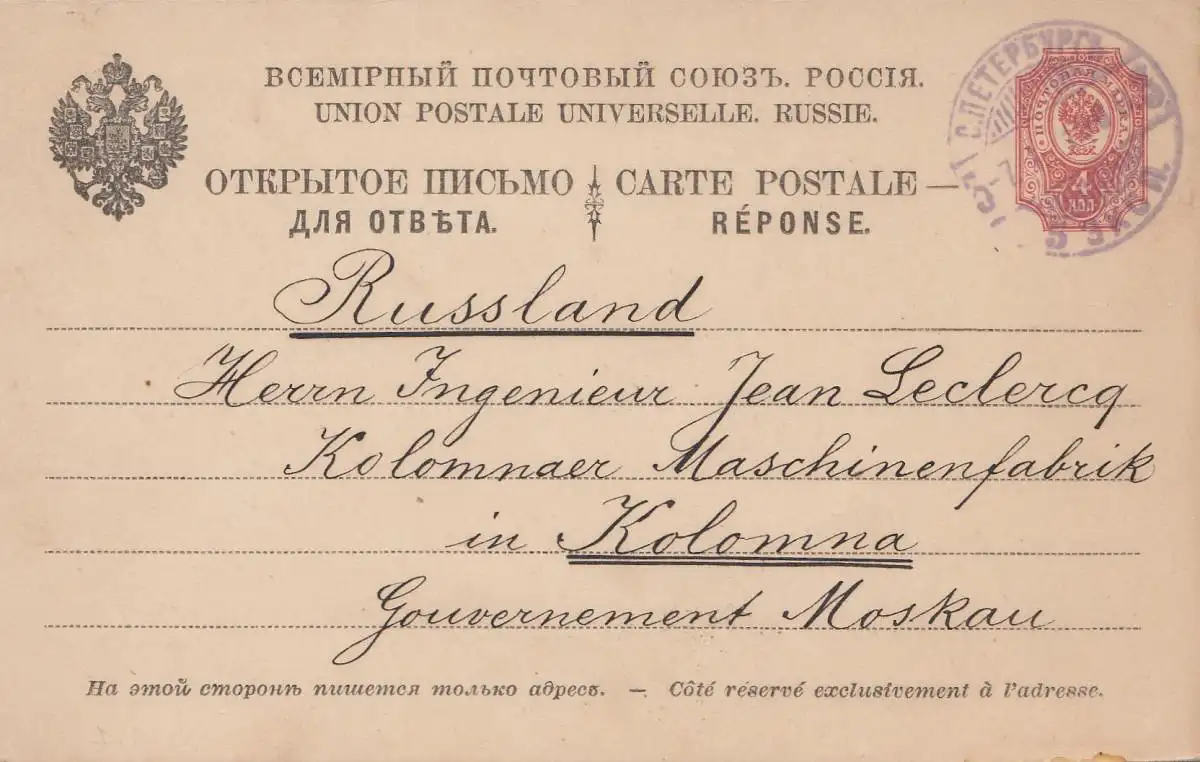 ВСЕМІРНЫЙ ПОЧТОВЫЙ СОЮЗЪ. РОССІЯ.
UNION POSTALE UNIVERSELLE. RUSSIE.
ОТКРЫТОЕ ПИСЬМО CARTE POSTALE —
ДЛЯ ОТВѢТА. RÉPONSE.
С.ПЕТЕРБУРГЪ
ПОЧТОВАЯ МАРКА.
4
КОП.
Russland
Herrn Ingenieur Jean Leclercq
Kolomnaer Maschinenfabrik
in Kolomna
Gouvernement Moskau
На этой сторонѣ пишется только адресъ. — Côté réservé exclusivement à l'adresse.